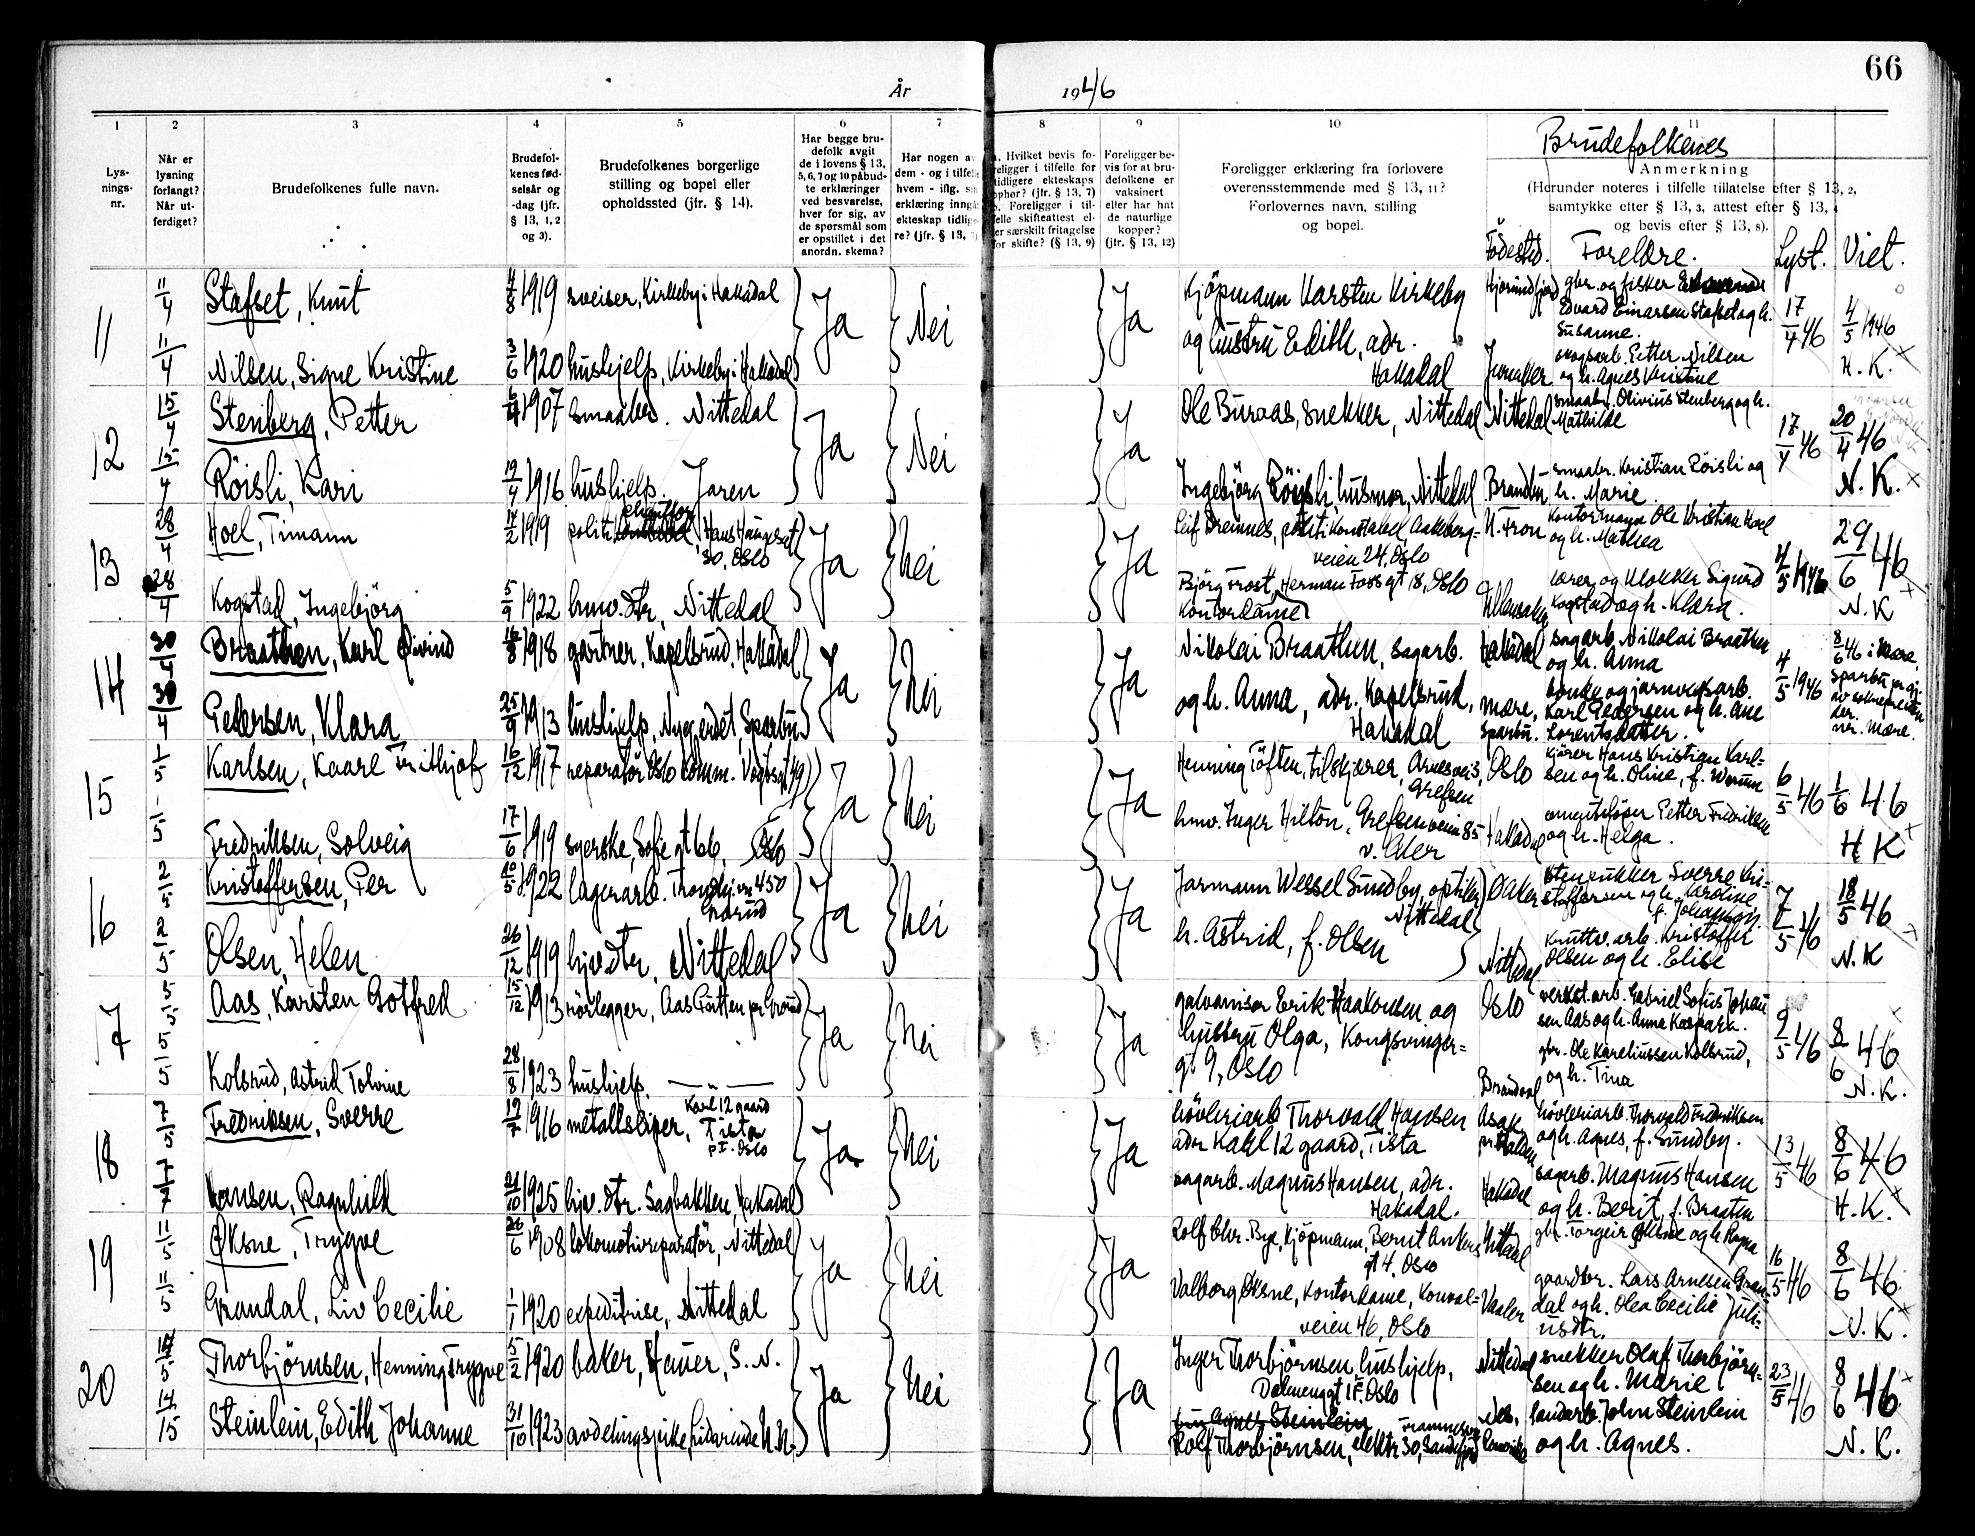 66
År 1946
1 2 3 4 5 6 7 8 9 10 11
Lysningsnr.
Når er lysning forlangt? Når utferdiget?
Brudefolkenes fulle navn.
Brudefolkenes fødselsår og -dag (jfr. § 13, 1, 2 og 3).
Brudefolkenes borgerlige stilling og bopel eller opholdssted (jfr. § 14).
Har begge brudefolk avgit de i lovens § 13, 5, 6, 7 og 10 påbudte erklæringer ved besvarelse, hver for sig, av de spørsmål som er opstillet i det anordn. skema?
Har nogen av dem - og i tilfelle hvem - iflg. sin erklæring inngått ekteskap tidligere? (jfr. § 13, 7)
a. Hvilket bevis foreligger i tilfelle for tidligere ekteskaps ophør? (jfr. § 13, 7) b. Foreligger i tilfelle skifteattest eller særskilt fritagelse for skifte? (§ 13, 9)
Foreligger bevis for at brudefolkene er vaksinert eller har hat de naturlige kopper? (jfr. § 13, 12)
Foreligger erklæring fra forlovere overensstemmende med § 13, 11? Forlovernes navn, stilling og bopel.
Brudefolkenes
Anmerkning
(Herunder noteres i tilfelle tillatelse efter § 13, 2, samtykke efter § 13, 3, attest efter § 13, 4 og bevis efter § 13, 8).
Fødested. Foreldre. Lyst. Viet.
11
11/4 Stafset, Knut 4/8 1919 sveiser, Kirkeby i Hakadal Ja Nei Ja
11/4 Nilsen, Signe Kristine 3/6 1920 hushjelp, Kirkeby i Hakadal
Kjöpmann Karsten Kirkeby
og hustru Edith, adr.
Hakadal
Hjørundfjord gbr. og fisker
Edvard Einarsen Stafset og h.
Susanne.
skogsarb. Petter Nilsen
og h. Agnes Kristine
17/4 46 4/5 1946
H. K.
12
15/4 Stenberg, Petter 1907 smaabr. Nittedal Ja Nei Ja
15/4 Röisli, Kari 19/4 1916 hushjelp. Jaren
Ole Buraas, snekker, Nittedal
Ingebjörg Röisli, husmor, Nittedal
Nittedal smaabr. Olivius Stenberg og h.
Mathilde
Brandbu smaabr. Kristian Röisli og
h. Marie.
17/4 46 20/4 46
N. K.
13
28/4 Hoel, Timann 14/2 1919 politi, Hans Haugeset
30, Oslo Ja Nei Ja
28/4 Kogstad, Ingebjörg 5/9 1922 hmv. dtr, Nittedal
Leif Dreunes, politikonstabel, Aakeberg=
veien 24, Oslo
Björg Frost, Herman Foss gt 18, Oslo
Kontordame
N. Fron kontormann Ole Kristian Hoel
og h. Mathea
Ullensaker lærer og klokker Sigurd
Kogstad og h. Klara.
4/5 1946 29/6 46
N. K
14
30/4 Braathen, Karl Øivind 1918 gartner, Kapelsrud, Hakadal Ja Nei Ja
30/4 Pedersen, Klara 25/9 1913 hushjelp, Nygerdet, Sparbu
Nikolai Braathen, sagarb.
og h. Anna, adr. Kapelsrud,
Hakadal
Hakadal sagarb. Nikolai Braathen
og h. Anna
mære, Sparbu. bruker og jarnvegsarb.
Karl Pedersen og h. Ane
Lorentsdatter.
4/5 1946 8/6 46 i Mære,
Sparbu
av sokneprestin
der.
nr. Mære.
15
1/5 Karlsen, Kaare Frithjof 16/12 1917 reparatör Oslo komm. Vogtsgt 49 Ja Nei Ja
1/5 Fredriksen, Solveig 17/6 1919 syerske, Sofie gt 66, Oslo
Henning Töften, tilskjærer, Arnesvei 3,
Grefsen
hmv. Inger Hilton, Grefsenveien 85
v. Aker
Oslo kjörer Hans Kristian Karl=
sen og h. Oline, f. Werum
Hakadal Petter Fredriksen
og h. Helga.
6/5 46 1/6 46
H K
16
2/5 Kristoffersen, Per 1922 lagerarb. Trondhj.vn 450
Grorud Ja Nei Ja
2/5 Olsen, Helen 26/12 1919 hjv. dtr, Nittedal
Jarmann Wessel Sundby, optiker
Nittedal
h. Astrid, f. Olsen
Aker Stenpukker Sverre Kri=
stoffersen og h. Karoline
f. Johansen
Nittedal Kruttv. arb. Kristoffer
Olsen og h. Elise
7/5 46 18/5 46
N. K
17
5/5 Aas, Karsten Gotfred 15/12 1913 rörlegger, Aas Putten pr Grorud Ja Nei Ja
5/5 Kolsrud, Astrid Tolvine 28/8 1923 hushjelp. — " —
galvanisør Erik Haakonsen og
hustru Olga, Kongsvinger=
gt 9, Oslo
Oslo verkst. arb. Gabriel Sofus Johan
sen Aas og h. Anna Kaspara.
Brandval gbr. Ole Kareliussen Kolsrud,
og h. Tina
9/5 46 8/6 46
N. K.
18
7/5 Fredriksen, Sverre 19/7 1916 metallsliper, Karl 12 gaard
Tista
p I. Oslo Ja Nei Ja
7/7 Hansen, Ragnhild 21/10 1925 hjv. dtr. Sagbakken, Hakadal
hövleriarb Thorvald Hansen
adr Karl 12 gaard, Tista
sagarb. Magnus Hansen, adr.
Hakadal.
Asak pr. Halden hövleriarb. Thorvald Fredriksen
og h. Agnes, f. Sundby.
Hakadal sagarb. Magnus Hansen
og h. Berit, f. Braaten
13/5 46 8/6 46
H. K.
19
11/5 Øksne, Trygve 26/6 1908 lokomotivreparatör, Nittedal Ja Nei Ja
11/5 Grandal, Liv Cecilie 1/1 1920 expeditrise, Nittedal
Rolf Chr. Bye, Kjöpmann, Bernt Ankers
gt 4, Oslo
Valborg Øksne, Kontordame, Konval=
veien 46, Oslo
Nittedal gbr. Torgeir Øksne og h Ragna
Vaaler gaardbr. Lars Arnesen Gran=
dal og h. Olea Cecilie Juli=
usdtr.
16/5 46 8/6 46
N. K.
20
14/5 Thorbjörnsen, Henning Trygve 5/2 1920 baker, Hauer, S. N. Ja Nei Ja
14/15 Steinlein, Edith Johanne 31/10 1923 avdelingspike, Lidarende N. N.
Inger Thorbjörnsen, hushjelp,
Dalmenygt 15. Oslo
fru Agnes Steinlein
Rolf Thorbjörnsen, elektr 30, Sandefjord
Nittedal snekker Olaf Thorbjörn=
sen og h. Marie
landarb. John Steinlein
og h. Agnes.
23/5 46 8/6 46
N. K.